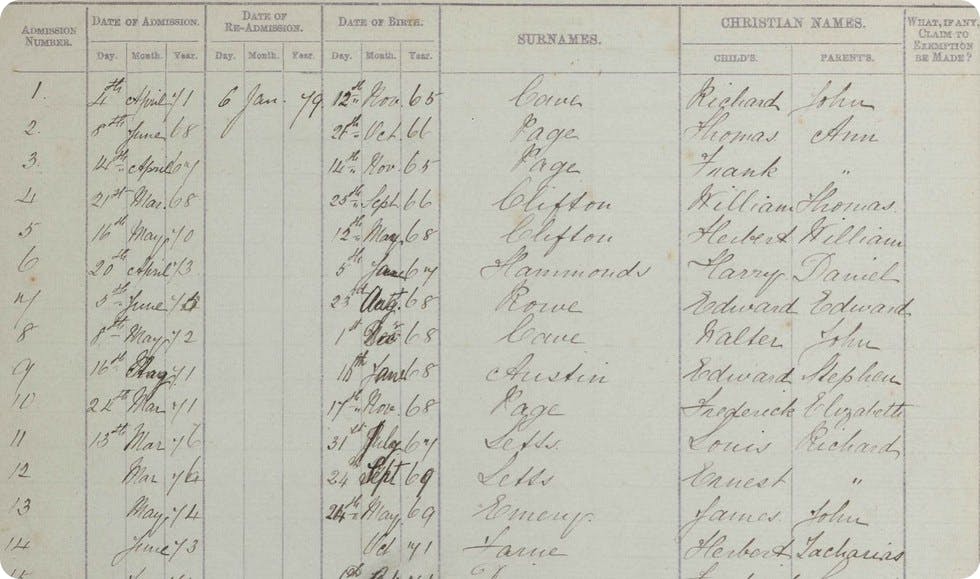 Admission Number. Date of Admission. Date of Re-Admission. Date of Birth. Surnames. Christian Names. What, if any, Claim to Exemption be Made?
Day. Month. Year. Day. Month. Year. Day. Month. Year. Child's. Parent's.
1. 4th April 71 6 Jan. 79 12th Nov. 65 Cave Richard John
2. 8th June 68 Oct. 66 Page Thomas Ann
3. 14th April 67 14th Nov. 65 Page Frank "
4 21st Mar. 68 25th Sept. 66 Clifton William Thomas
5 16th May 70 12th May 68 Clifton Herbert William
6 20th April 73 5th June 67 Hammonds Harry Daniel
7 5th June 75 23rd Aug. 68 Rowe Edward Edward
8 8th May 72 1st Dec 68 Cave Walter John
9 16th May 71 18th June 68 Austin Edward Stephen
10 22nd Mar 71 17th Nov. 68 Page Frederick Elizabeth
11 13th Mar 76 31st July 67 Letts Louis Richard
12 Mar 74 24 Sept 69 Letts Ernest "
13 May 74 24th May 69 Emery James John
14 June 73 Oct 71 Herbert Zacharias